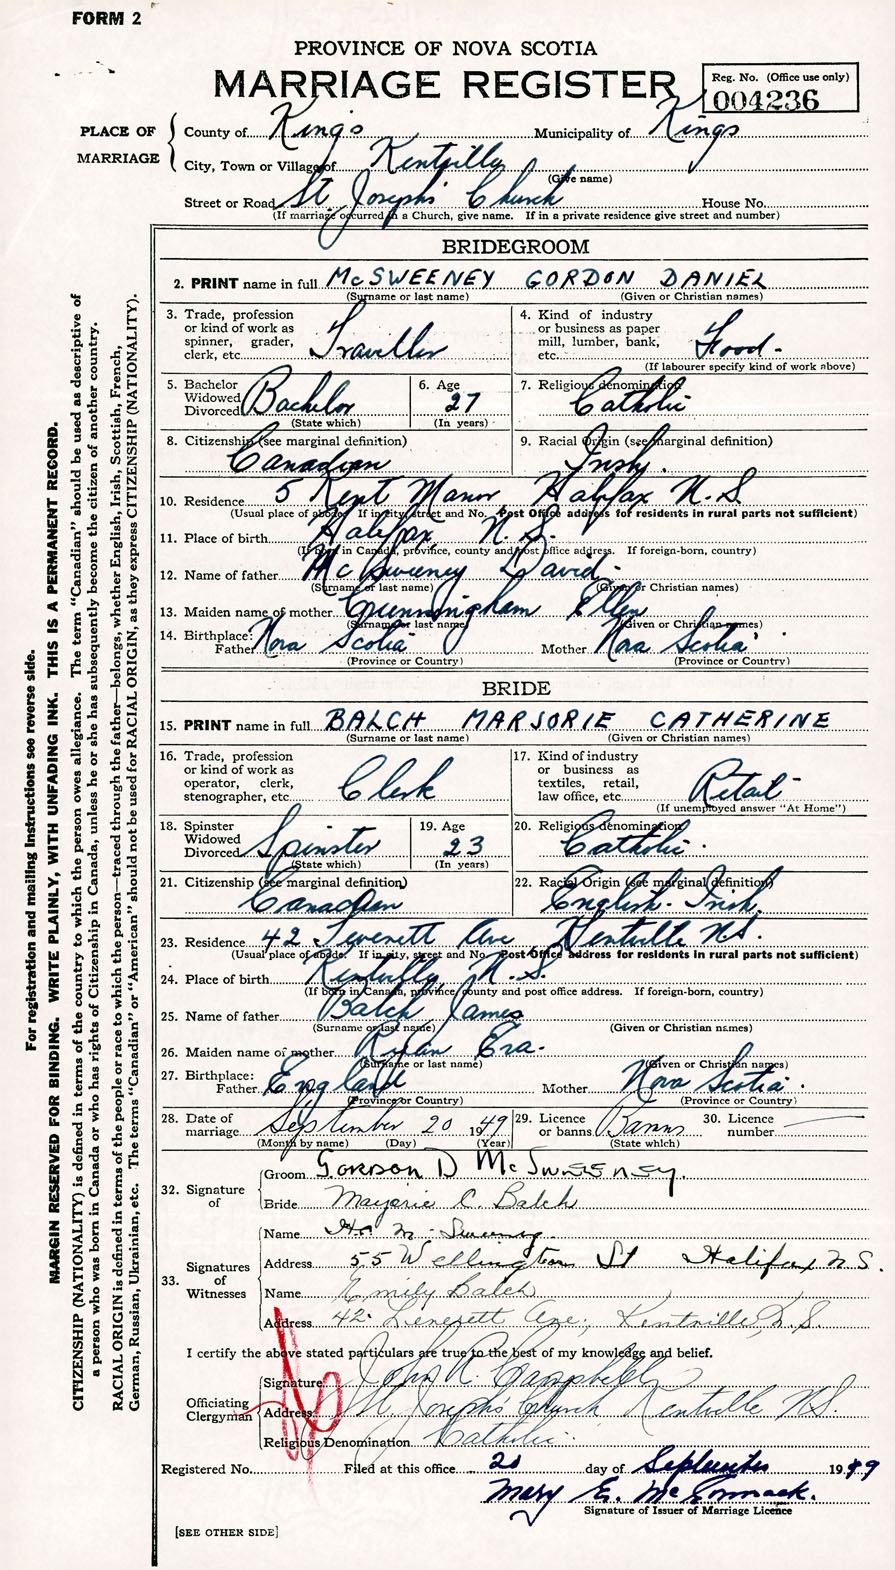 FORM 2
PROVINCE OF NOVA SCOTIA
MARRIAGE REGISTER
Reg. No. (Office use only)
004236
PLACE OF MARRIAGE
County of Kings Municipality of Kings
City, Town or Village of Kentville
(Give name)
Street or Road St. Joseph's Church House No.
(If marriage occurred in a Church, give name. If in a private residence give street and number)
BRIDEGROOM
2. PRINT name in full McSWEENEY GORDON DANIEL
(Surname or last name) (Given or Christian names)
3. Trade, profession or kind of work as spinner, grader, clerk, etc. Traveller
4. Kind of industry or business as paper mill, lumber, bank, etc. Food-
(If labourer specify kind of work above)
5. Bachelor Widowed Divorced Bachelor
(State which)
6. Age 27
(In years)
7. Religious denomination Catholic
8. Citizenship (see marginal definition) Canadian
9. Racial Origin (see marginal definition) Irish.
10. Residence 5 Kent Manor Halifax N.S.
(Usual place of abode. If in city, street and No. Post Office address for residents in rural parts not sufficient)
11. Place of birth Halifax N.S.
(If born in Canada, province, county and post office address. If foreign-born, country)
12. Name of father McSweeney David-
(Surname or last name) (Given or Christian names)
13. Maiden name of mother Cunningham Ellen
(Surname or last name) (Given or Christian names)
14. Birthplace: Father Nova Scotia Mother Nova Scotia
(Province or Country) (Province or Country)
BRIDE
15. PRINT name in full BALCH MARJORIE CATHERINE
(Surname or last name) (Given or Christian names)
16. Trade, profession or kind of work as operator, clerk, stenographer, etc. Clerk
17. Kind of industry or business as textiles, retail, law office, etc. Retail-
(If unemployed answer "At Home")
18. Spinster Widowed Divorced Spinster
(State which)
19. Age 23
(In years)
20. Religious denomination Catholic.
21. Citizenship (see marginal definition) Canadian
22. Racial Origin (see marginal definition) English-Irish
23. Residence 42 Leverett Ave Kentville N.S.
(Usual place of abode. If in city, street and No. Post Office address for residents in rural parts not sufficient)
24. Place of birth Kentville, N.S.
(If born in Canada, province, county and post office address. If foreign-born, country)
25. Name of father Balch James
(Surname or last name) (Given or Christian names)
26. Maiden name of mother Ryan Era-
(Surname or last name) (Given or Christian names)
27. Birthplace: Father England Mother Nova Scotia.
(Province or Country) (Province or Country)
28. Date of marriage September 20 1949
(Month by name) (Day) (Year)
29. Licence or banns Banns
(State which)
30. Licence number
32. Signature of
Groom Gordon D McSweeney.
Bride Marjorie C. Balch
33. Signatures of Witnesses
Name
Address 55 Wellington St Halifax N.S.
Name Emily Balch
Address 42 Leverett Ave., Kentville, N.S.
I certify the above stated particulars are true to the best of my knowledge and belief.
Officiating Clergyman
Signature John R. Campbell
Address St. Joseph's Church Kentville N.S.
Religious Denomination Catholic.
Registered No. Filed at this office 20 day of September 1949
Mary E. McCormack.
Signature of Issuer of Marriage Licence
[SEE OTHER SIDE]
For registration and mailing instructions see reverse side.
MARGIN RESERVED FOR BINDING. WRITE PLAINLY, WITH UNFADING INK. THIS IS A PERMANENT RECORD.
CITIZENSHIP (NATIONALITY) is defined in terms of the country to which the person owes allegiance. The term "Canadian" should be used as descriptive of
a person who was born in Canada or who has rights of Citizenship in Canada, unless he or she has subsequently become the citizen of another country.
RACIAL ORIGIN is defined in terms of the people or race to which the person—traced through the father—belongs, whether English, Irish, Scottish, French,
German, Russian, Ukrainian, etc. The terms "Canadian" or "American" should not be used for RACIAL ORIGIN, as they express CITIZENSHIP (NATIONALITY).